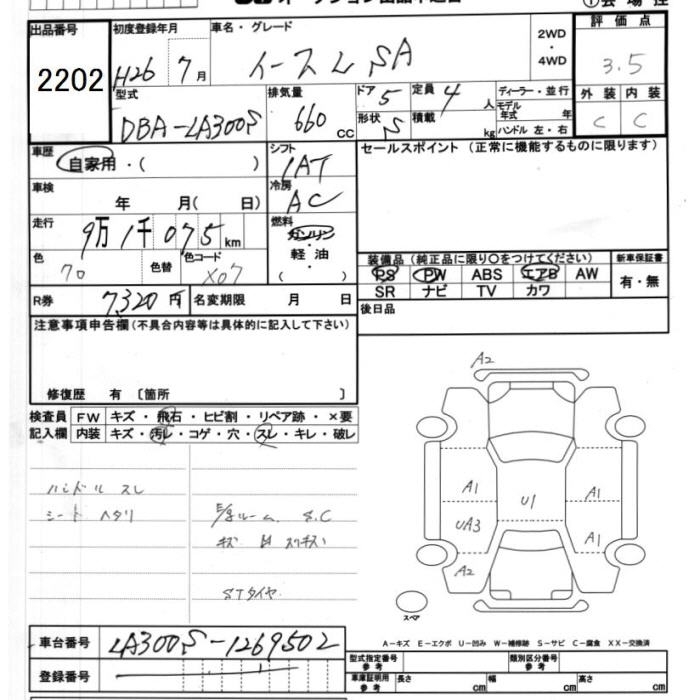 出品番号 2202
初度登録年月 H26年 7月
車名・グレード イース L SA
2WD・4WD
評価点 3.5
外装 C 内装 C
型式 DBA-LA300S
排気量 660 cc
ドア 5
形状 S
定員 4 人
積載 kg
ディーラー・並行
モデル年式 年
ハンドル 左・右
車歴 自家用・( )
シフト IAT
セールスポイント (正常に機能するものに限ります)
車検 年 月( 日)
冷房 AC
走行 9万1千075km
燃料 ガソリン・軽油・( )
色 70 色替 色コード X07
装備品 (純正品に限り○をつけてください)
新車保証書
PS PW ABS エアB AW
SR ナビ TV カワ
有・無
R券 7,320円 名変期限 月 日
後日品
注意事項申告欄(不具合内容等は具体的に記入して下さい)
修復歴 有 〔箇所 〕
検査員記入欄
FW キズ・飛石・ヒビ割・リペア跡・×要
内装 キズ・汚レ・コゲ・穴・スレ・キレ・破レ
ハンドル スレ
シート ヘタリ
ルーム S.C
キズ
STタイヤ
A2
A1
U1
A1
UA3
A1
A2
スペア
車台番号 LA300S-1269502
登録番号
A-キズ E-エクボ U-凹み W-補修跡 S-サビ C-腐食 XX-交換済
型式指定番号 参考
類別区分番号 参考
車庫証明用 参考 長さ cm 幅 cm 高さ cm